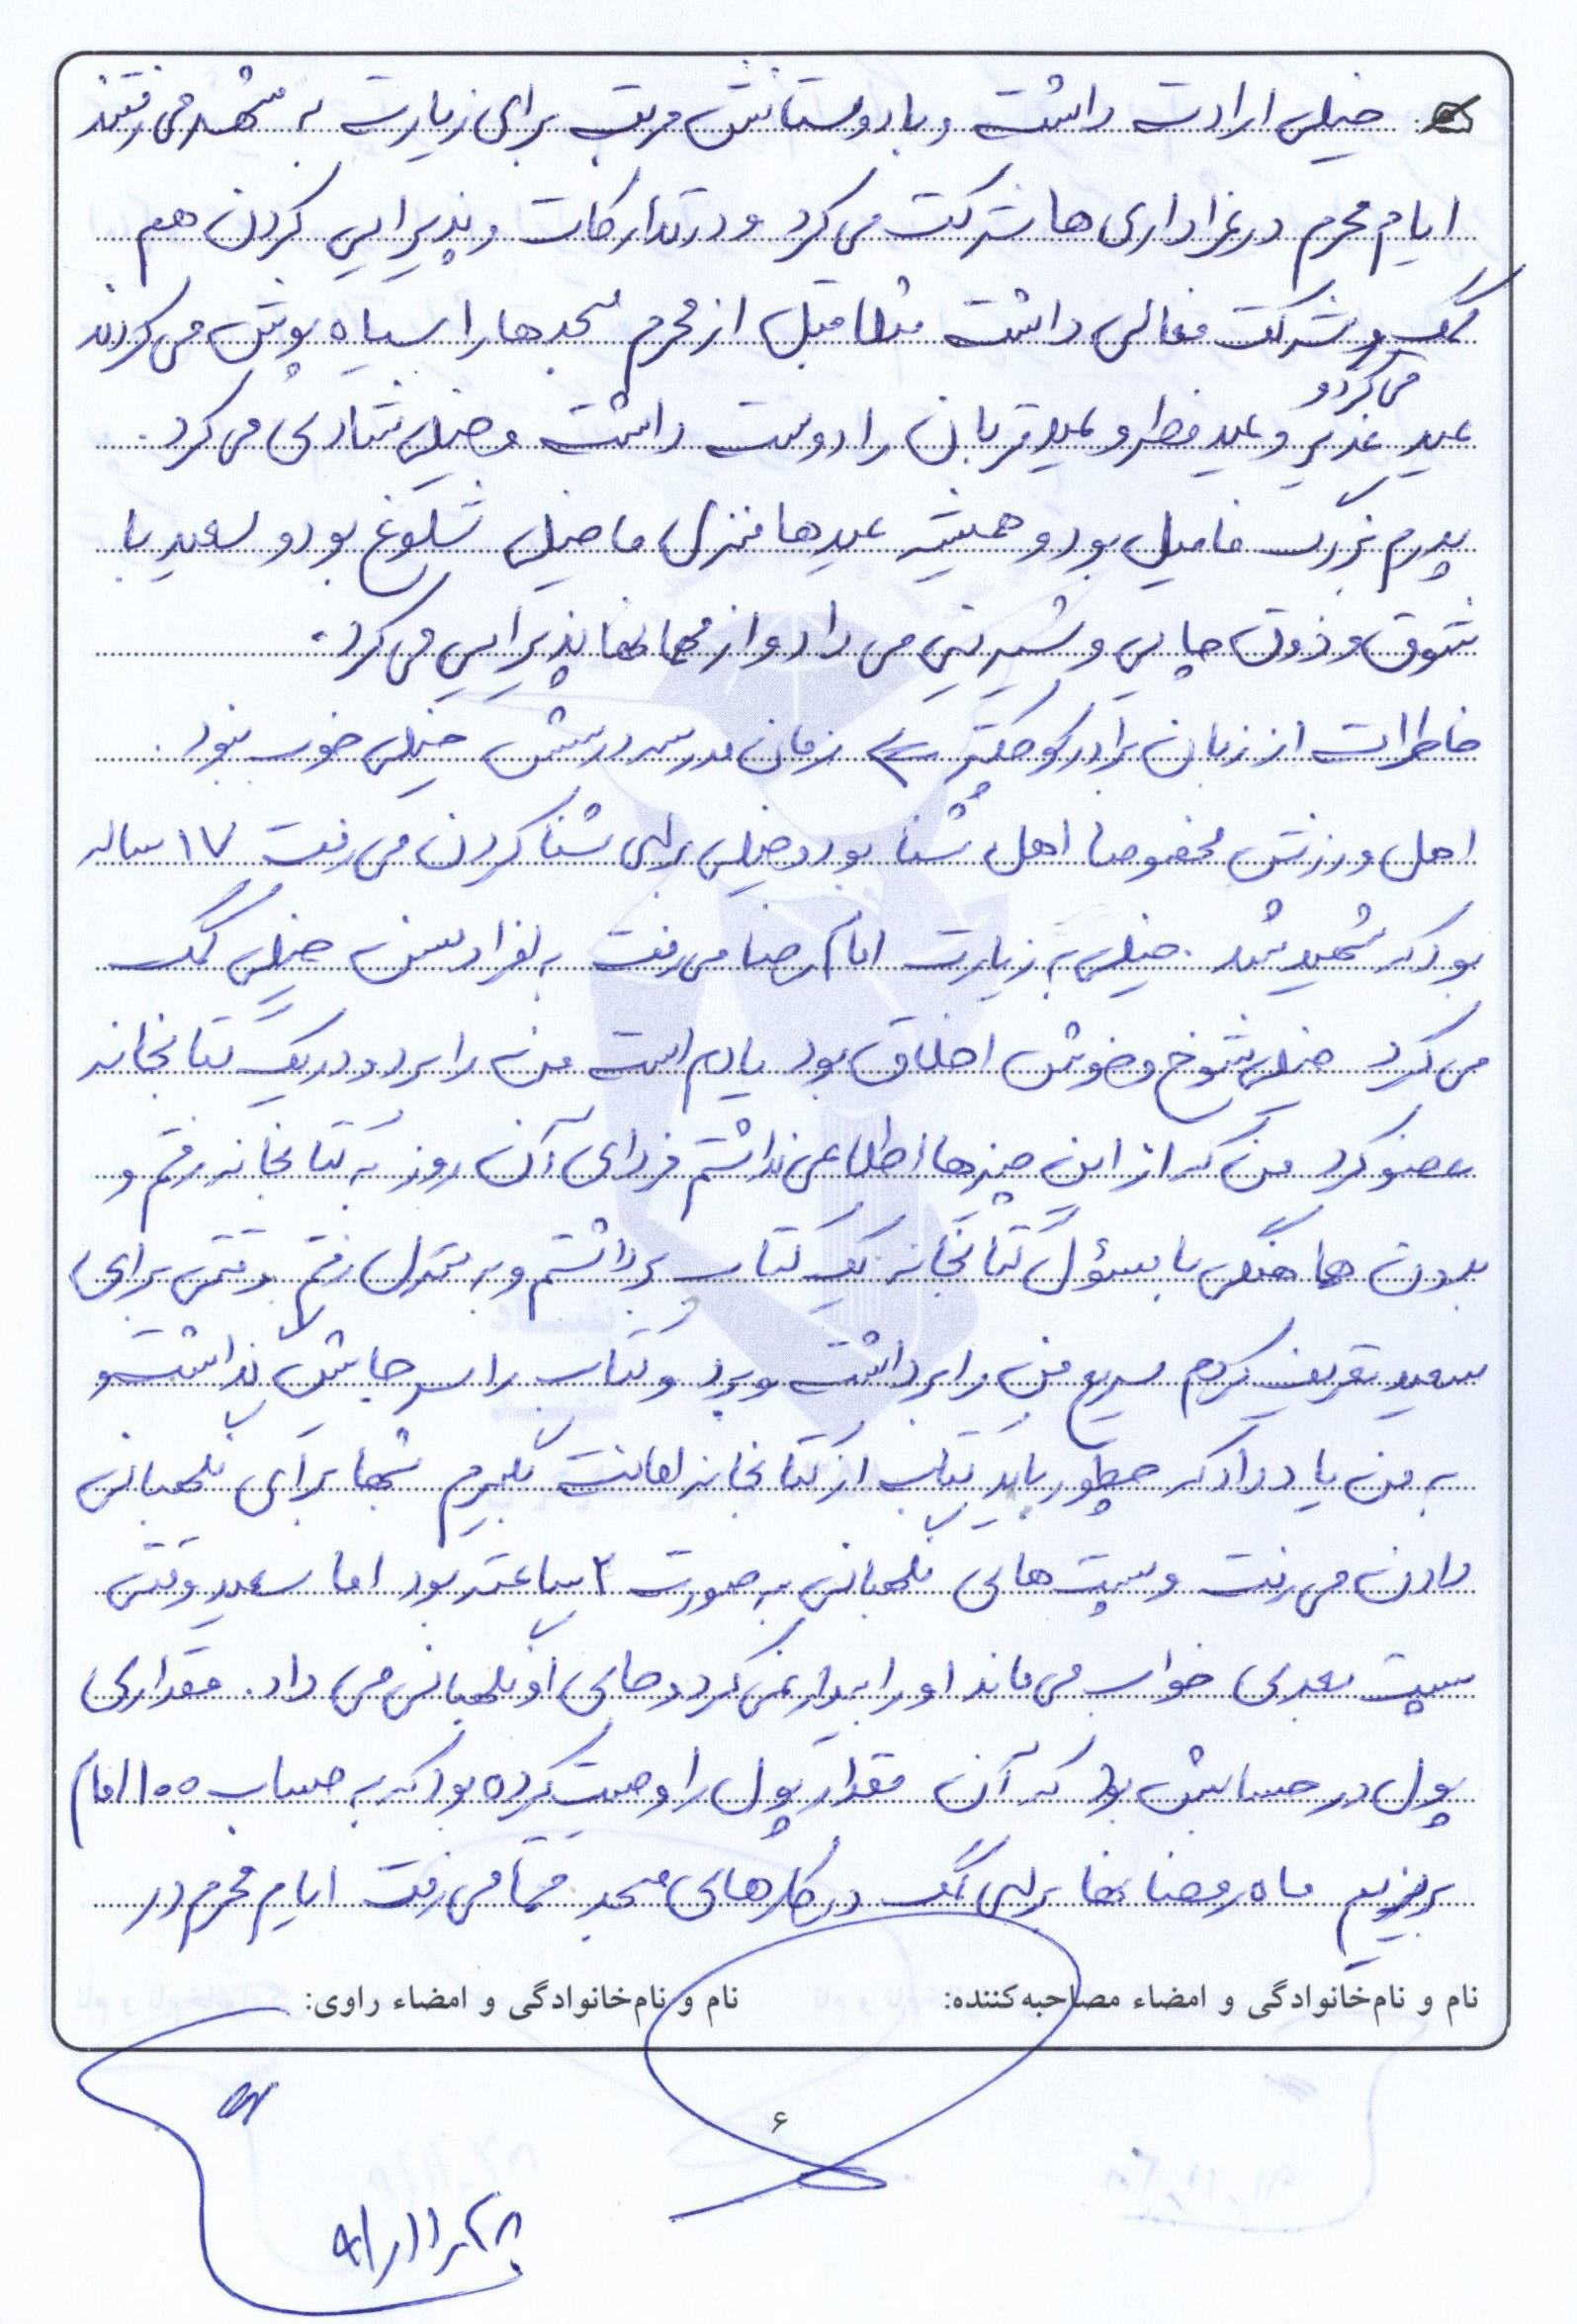 خیلی ارادت داشت و با دوستانش مرتب برای زیارت به مشهد می رفتند
ایام محرم در عزاداری ها شرکت می کرد و در تدارکات و پذیرایی کردن هم
کمک و شرکت فعالی داشت مثلا قبل از محرم مسجدها را سیاه پوش می کردند
می کرد و
عید غدیر و عید فطر و عید قربان را دوست داشت و خیلی شادی می کرد.
پدرم بزرگ فامیل بود و همیشه عیدها منزل ما خیلی شلوغ بود و سعید با
شوق و ذوق چایی و شیرینی می داد و از مهمانها پذیرایی می کرد.
خاطرات از زبان برادر کوچکتر زمان مدرسه درسش خیلی خوب نبود.
اهل ورزش مخصوصا اهل شنا بود و خیلی برای شنا کردن می رفت ۱۷ ساله
بود که شهید شد. خیلی به زیارت امام رضا می رفت به افراد مسن خیلی کمک
می کرد خیلی شوخ و خوش اخلاق بود یادم است من را برد و در یک کتابخانه
عضو کرد من که از این چیزها اطلاعی نداشتم فردای آن روز به کتابخانه رفتم و
بدون هماهنگی با مسؤل کتابخانه یک کتاب برداشتم و به منزل رفتم وقتی برای
سعید تعریف کردم سریع من را برداشت و برد و کتاب را سر جایش گذاشت و
به من یاد داد که چطور باید کتاب از کتابخانه امانت بگیرم شبها برای نگهبانی
دادن می رفت و سپت های نگهبانی به صورت ۲ ساعته بود اما سعید وقتی
سپت بعدی خواب می ماند او را بیدار نمی کرد و جای او نگهبانی می داد. مقداری
پول در حسابش بود که آن مقدار پول را وصیت کرده بود که به حساب ۱۰۰ امام
بریزیم ماه رمضانها برای کمک در کارهای مسجد حتما می رفت ایام محرم در
نام و نام‌خانوادگی و امضاء مصاحبه‌کننده:
نام و نام‌خانوادگی و امضاء راوی:
۶